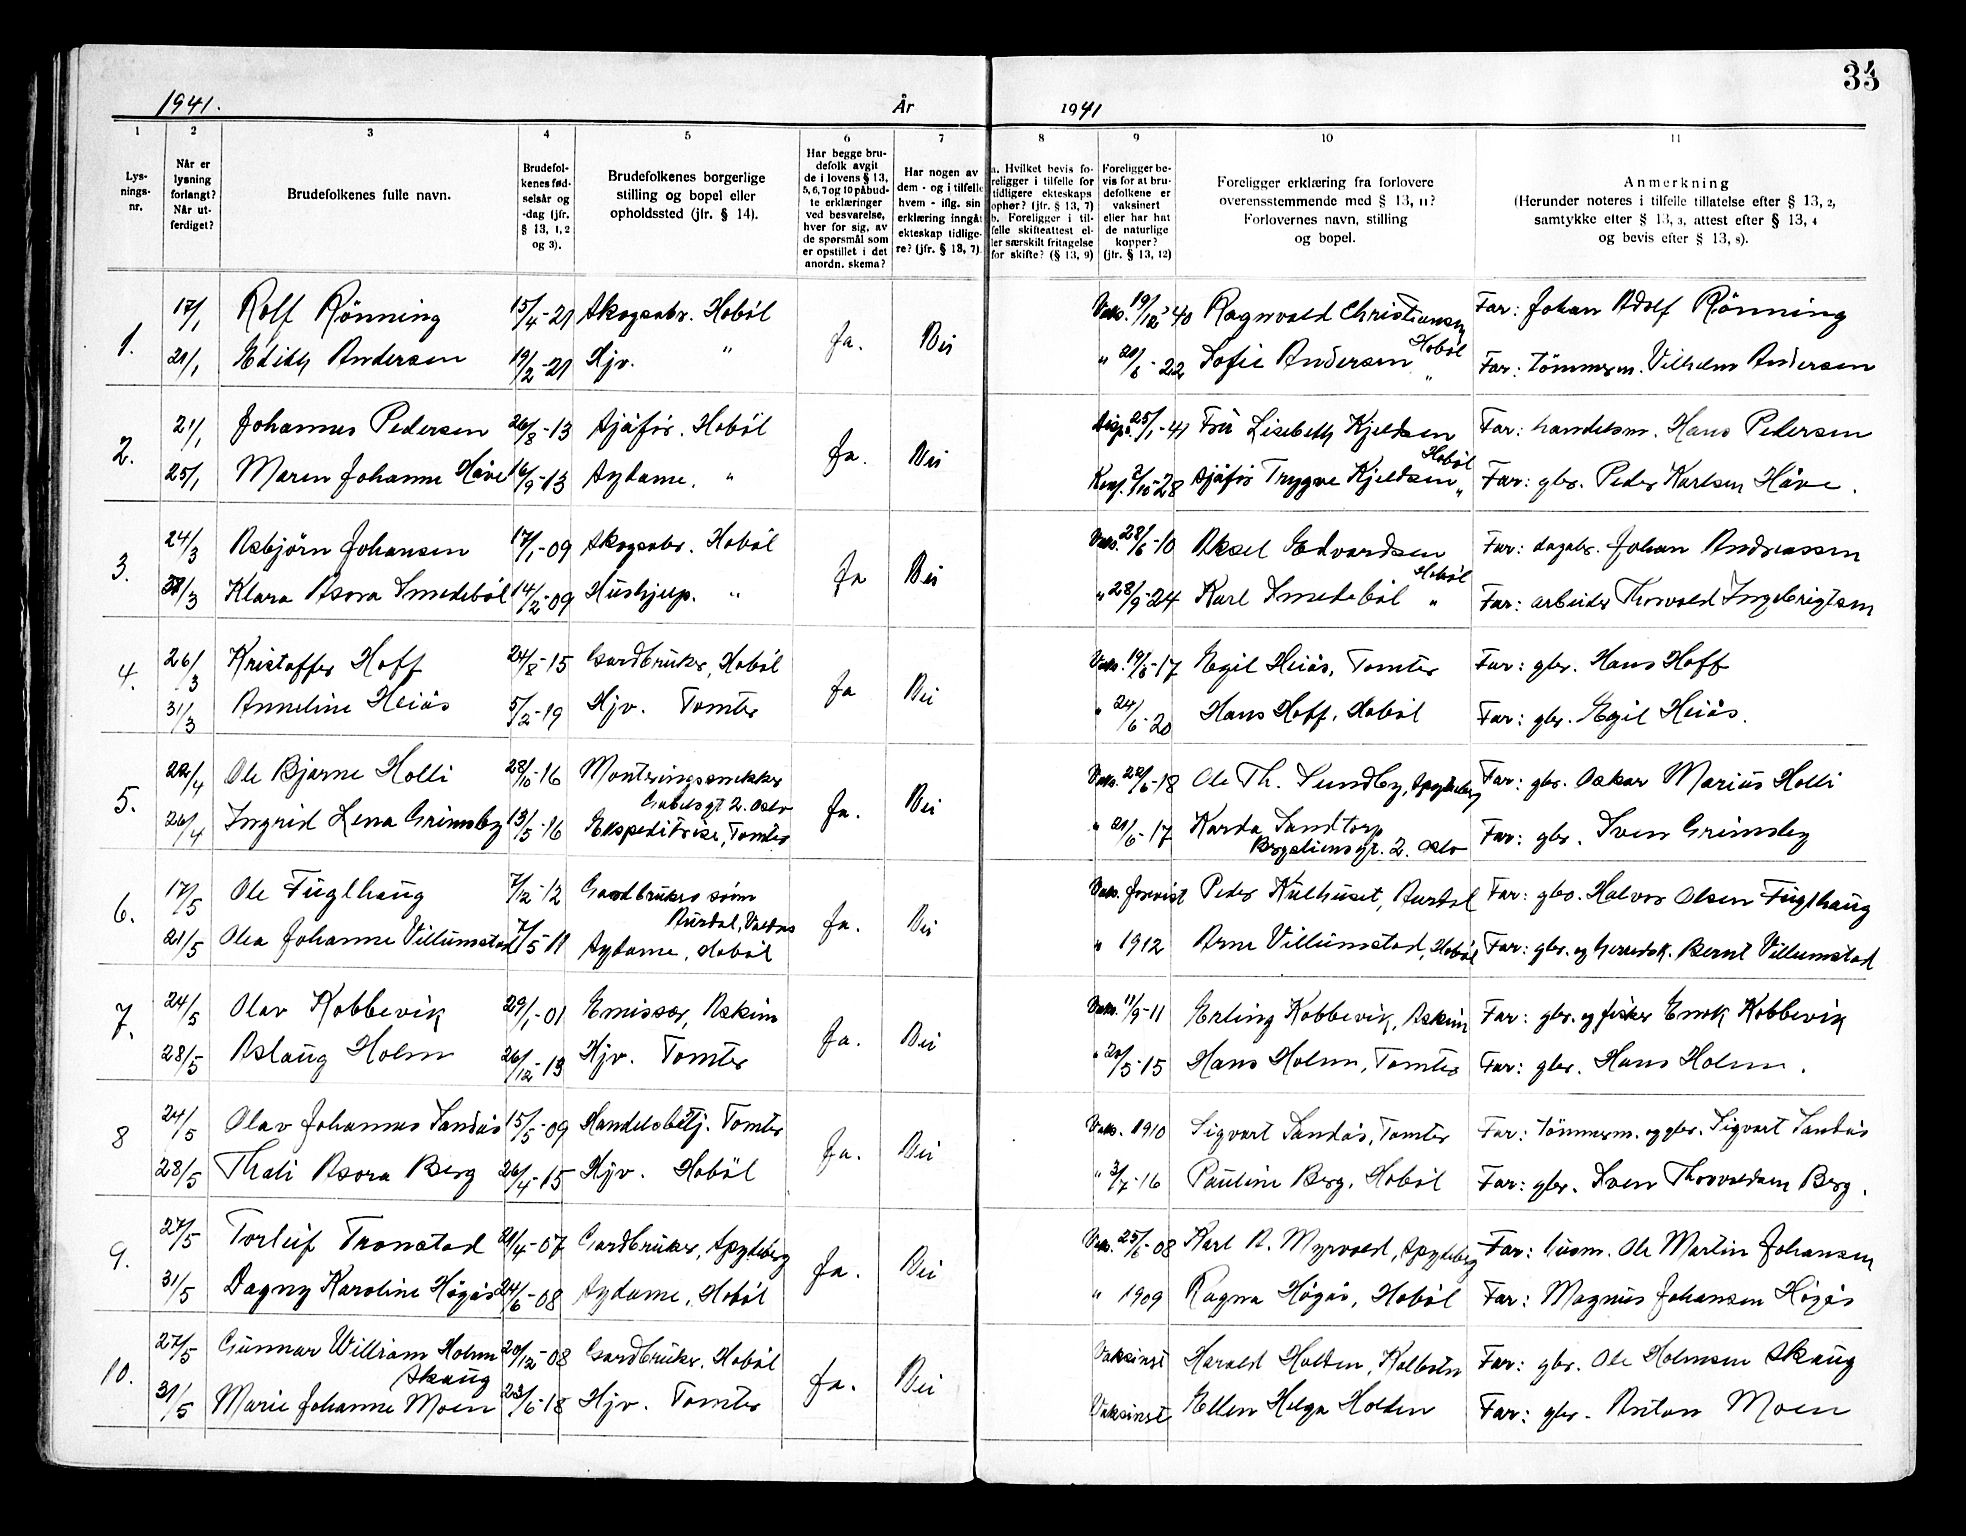 34
1941.
År
1941
1
2
3
4
5
6
7
8
9
10
11
Lysningsnr.
Når er lysning forlangt? Når utferdiget?
Brudefolkenes fulle navn.
Brudefolkenes fødselsår og -dag (jfr. § 13, 1, 2 og 3).
Brudefolkenes borgerlige stilling og bopel eller opholdssted (jfr. § 14).
Har begge brudefolk avgit de i lovens § 13, 5, 6, 7 og 10 påbudte erklæringer ved besvarelse, hver for sig, av de spørsmål som er opstillet i det anordn. skema?
Har nogen av dem - og i tilfelle hvem - iflg. sin erklæring inngått ekteskap tidligere? (jfr. § 13, 7).
a. Hvilket bevis foreligger i tilfelle for tidligere ekteskaps ophør? (jfr. § 13, 7) b. Foreligger i tilfelle skifteattest eller særskilt fritagelse for skifte? (§ 13, 9)
Foreligger bevis for at brudefolkene er vaksinert eller har hat de naturlige kopper? (jfr. § 13, 12)
Foreligger erklæring fra forlovere overensstemmende med § 13, 11? Forlovernes navn, stilling og bopel.
Anmerkning
(Herunder noteres i tilfelle tillatelse efter § 13, 2, samtykke efter § 13, 3, attest efter § 13, 4 og bevis efter § 13, 8).
1. 17/1 Rolf Rönning 15/4-21 Skogsabr. Hobøl Ja. Nei Vaks. 19/12-40 Ragnvald Christiansen Hobøl Far: Johan Adolf Rönning
21/1 Edith Andersen 19/2-21 Hjv. " " 20/6-22 Sofie Andersen " Far: Tömmerm. Vilhelm Andersen
2. 21/1 Johannes Pedersen 26/8-13 Sjåför. Hobøl Ja. Nei Disp. 25/1-41 Fru Lisebeth Kjeldsen Hobøl Far: handelsm. Hans Pedersen
25/1 Maren Johanne Håve 16/9-13 Sydame. " Konf. 7/10-28 Sjåför Trygve Kjeldsen " Far: gbr. Peder Karlsen Håve.
3. 24/3 Asbjörn Johansen 17/1-09 Skogsabr. Hobøl Ja Nei Vaks. 28/6-10 Aksel Edvardsen Hobøl Far: dagabr. Johan Andreassen
31/3 Klara Asora Smedebøl 14/2-09 Hushjelp. " " 28/9-24 Karl Smedebøl " Far: arbeider Thorvald Ingebrigtsen
4. 26/3 Kristoffer Hoff 24/8-15 Gardbruker, Hobøl Ja Nei Vaks. 19/6-17 Egil Heiås, Tomter Far: gbr. Hans Hoff
31/3 Anneline Heiås 5/2-19 Hjv. Tomter " 24/6-20 Hans Hoff, Hobøl Far: gbr. Egil Heiås.
5. 22/4 Ole Bjarne Holli 28/10-16 Monteringssnekker Gabelsgt 2. Oslo Ja. Nei Vaks. 22/6-18 Ole Th. Sundby, Spydeberg Far: gbr. Oskar Marius Holli
26/4 Ingrid Lena Grimsby 13/5-16 Ekspeditrise, Tomter " 21/6-17 Karda Sandtorp Bergsliensgt. 2. Oslo Far: gbr. Sven Grimsby
6. 17/5 Ole Fuglhaug 7/12-12 Gardbrukers sønn Aurdal, Valdres Ja. Nei Vaks. forevist Peder Kulhuset, Aurdal Far: gbr. Halvor Olsen Fuglhaug
21/5 Olea Johanne Villumstad 7/5-11 Sydame, Hobøl " 1912 Arne Villumstad, Hobøl Far: gbr. og herredsk. Bernt Villumstad
7. 24/5 Olav Kobbevik 29/1-01 Emissær, Askim Ja. Nei Vaks. 11/9-11 Erling Kobbevik, Askim Far: gbr. og fisker Enok Kobbevik
28/5 Aslaug Holm 26/12-13 Hjv. Tomter " 20/5-15 Hans Holm, Tomter Far: gbr. Hans Holm.
8 24/5 Olav Johannes Sandås 15/5-09 Handelsbetj. Tomter Ja. Nei Vaks. 1910 Sigvart Sandås, Tomter Far: Tömmerm. og gbr. Sigvart Sandås
28/5 Thali Asora Berg 26/4-15 Hjv. Hobøl " 3/7-16 Pauline Berg, Hobøl Far: gbr. Sven Thorvaldsen Berg.
9. 27/5 Torleif Tronstad 21/4-07 Gardbruker, Spydeberg Ja. Nei Vaks. 25/6-08 Karl A. Myrvold, Spydeberg Far: husm. Ole Martin Johansen
31/5 Dagny Karoline Høgås 24/6-08 Sydame, Hobøl " 1909 Ragna Høgås, Hobøl Far: Magnus Johansen Høgås
10. 27/5 Gunnar William Holm Skaug 20/12-08 Gardbruker. Hobøl Ja. Nei Vaksinst Harald Holden, Kolbotn Far: gbr. Ole Holmsen Skaug
31/5 Marie Johanne Moen 23/6-18 Hjv. Tomter Vaksinst Ellen Helga Holden Far: gbr. Anton Moen